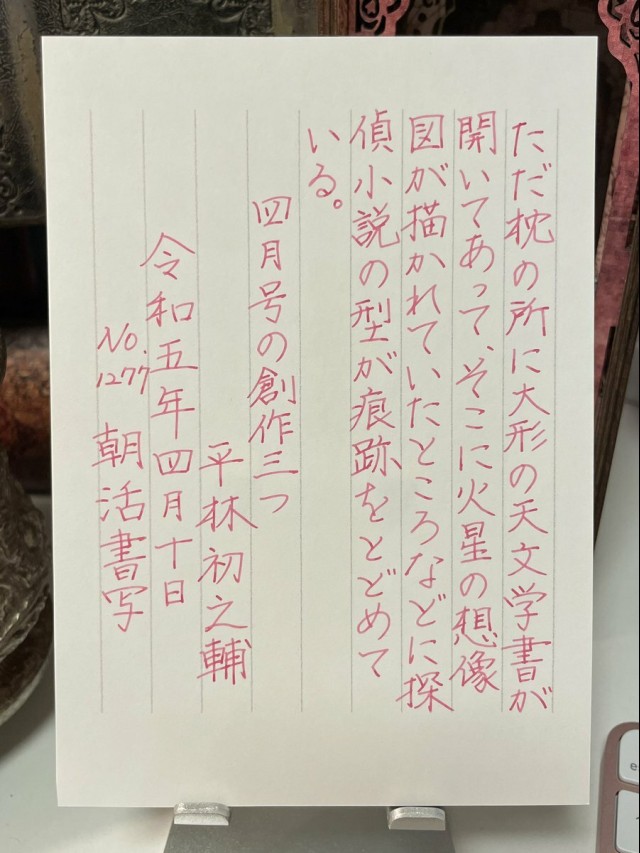 ただ枕の所に大形の天文学書が
開いてあって、そこに火星の想像
図が描かれていたところなどに探
偵小説の型が痕跡をとどめて
いる。
四月号の創作三つ
平林初之輔
令和五年四月十日
No.1277 朝活書写